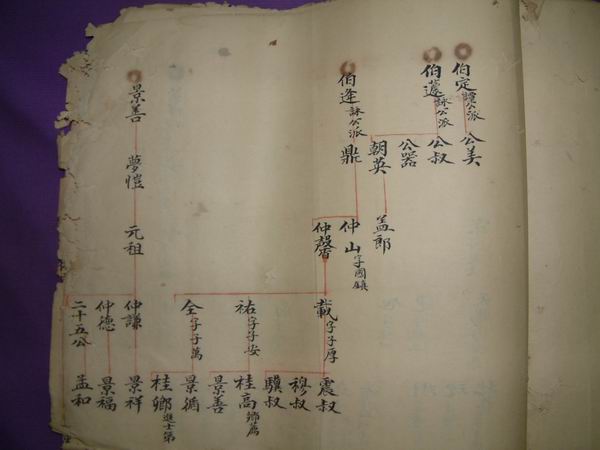 伯定諱公派
公美
伯蘧詠公派
公叔
公器
朝英
孟郎
伯逢詠公派
鼎
仲山字國鎮
仲馨
載字子厚
祐字子安
仝字子萬
震叔
穆叔
驥叔
桂高鄉薦
景善
景循
桂鄉進士第
景善
夢愷
元祖
仲謙
仲德
二十五公
景祥
景福
孟和